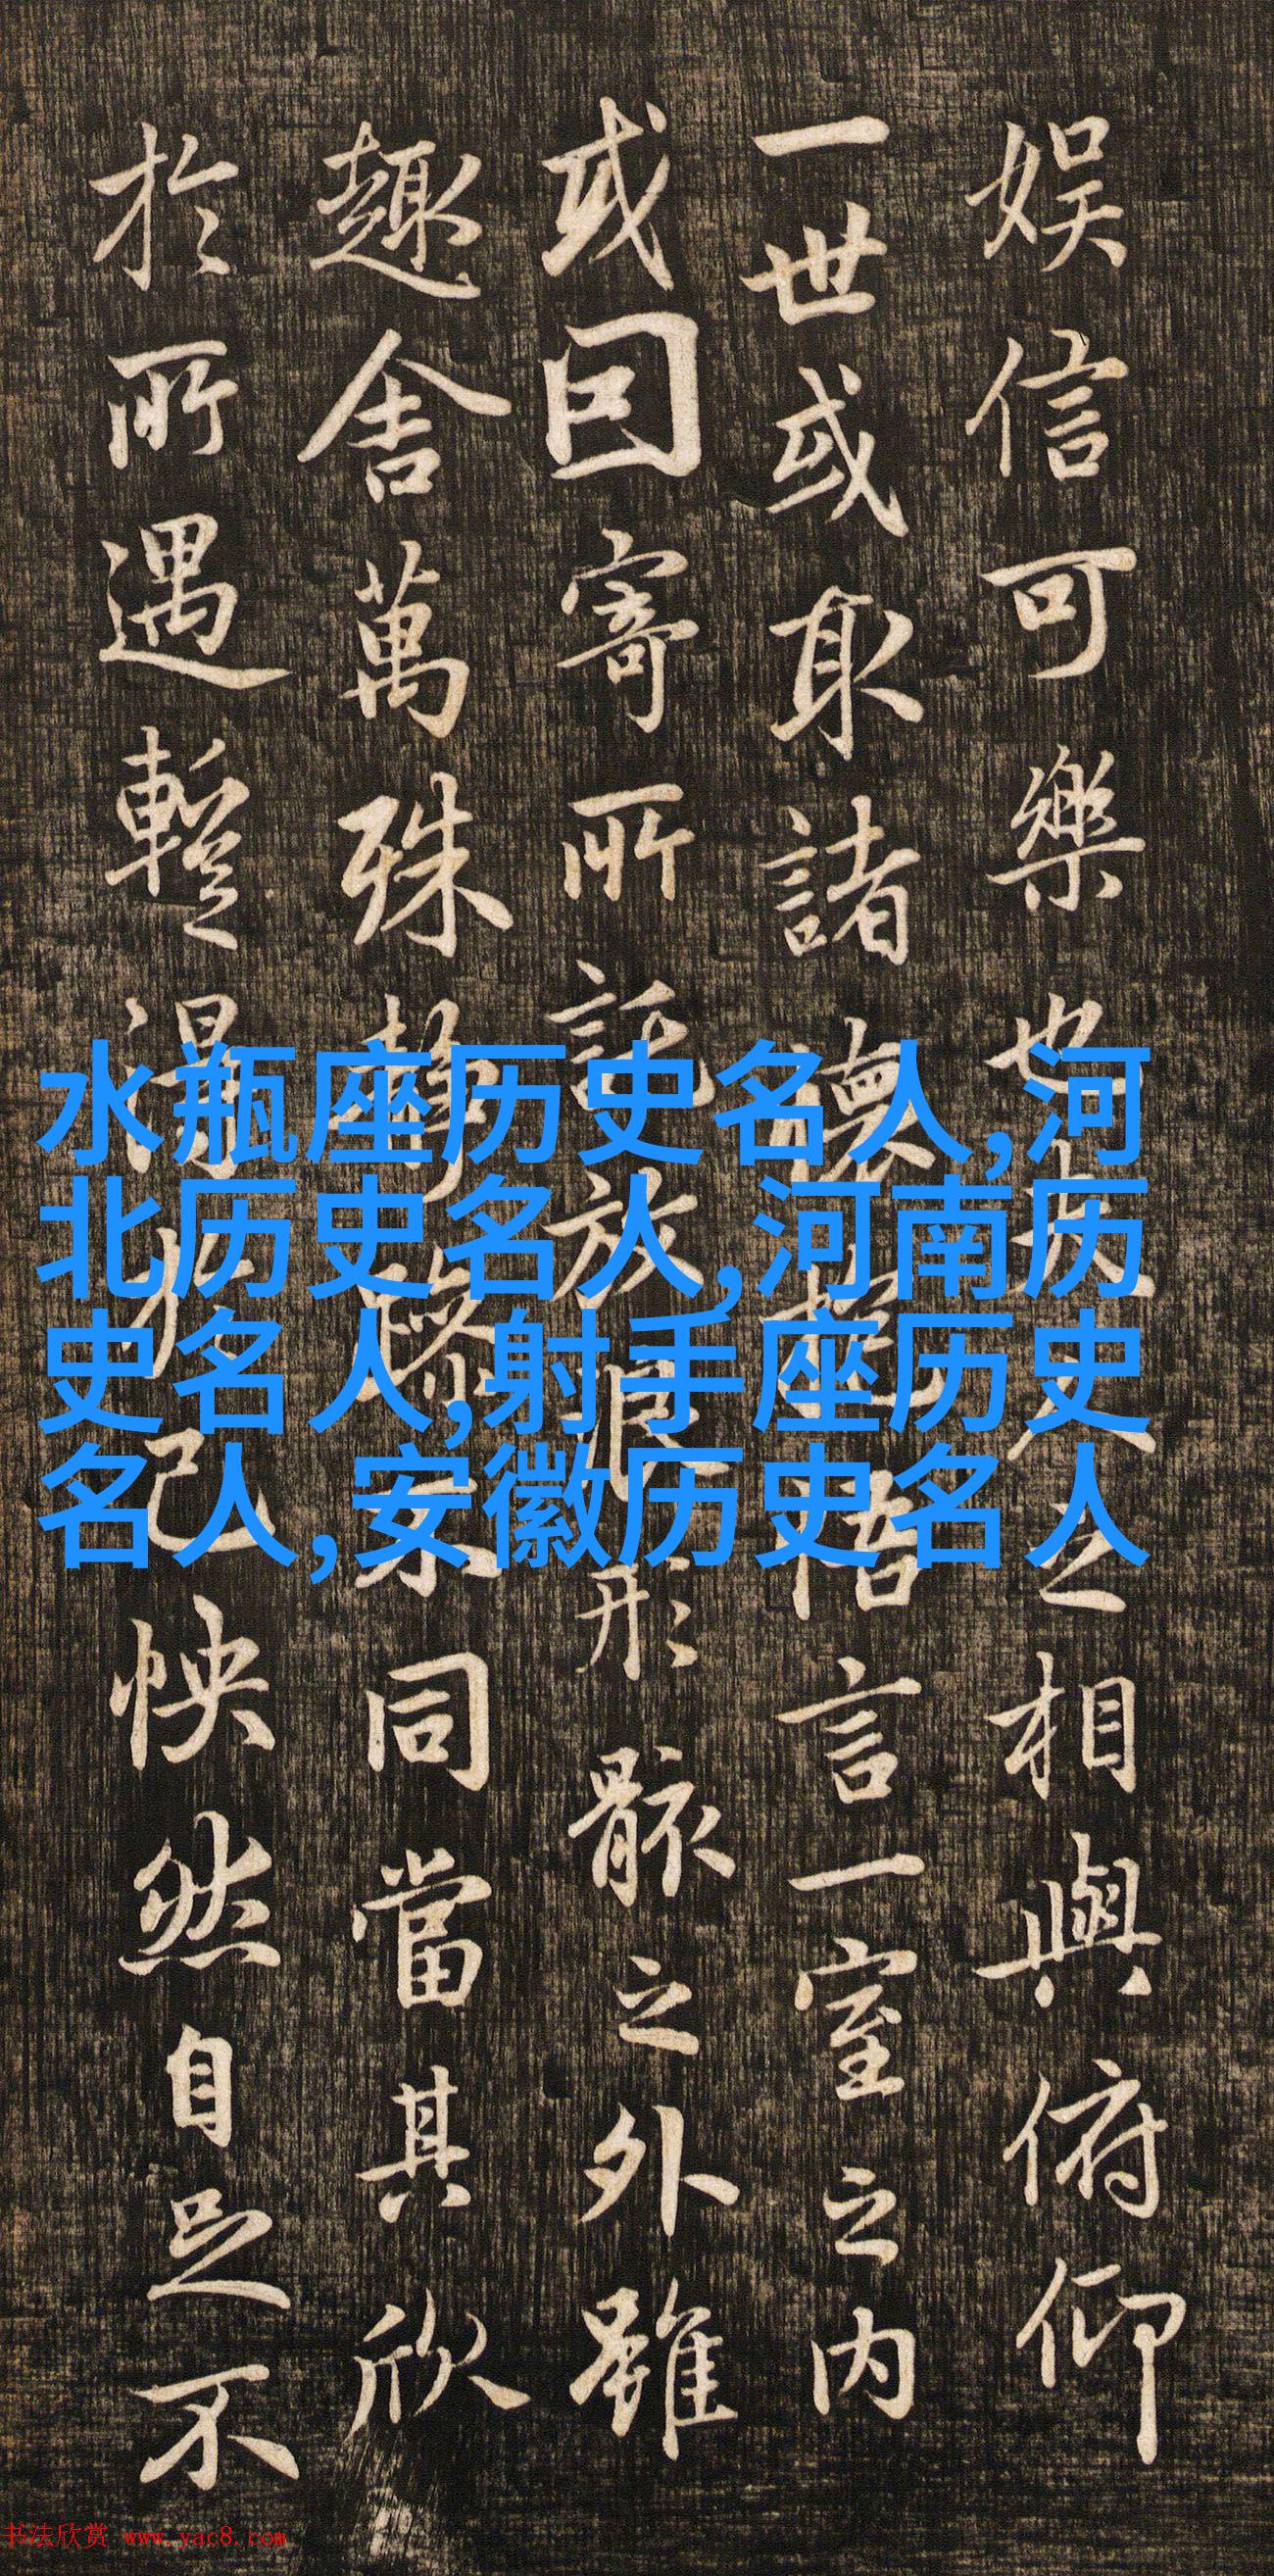 娱信可樂也夫人之相與俯仰
一世或取諸懷抱悟言一室之内
或因寄所託放浪形骸之外雖
趣舍萬殊静躁不同當其欣
於所遇暫得於己怏然自足不
水瓶座历史名人,河
北历史名人,河南历
史名人,射手座历史
名人,安徽历史名人
书法欣赏 www.yac8.com